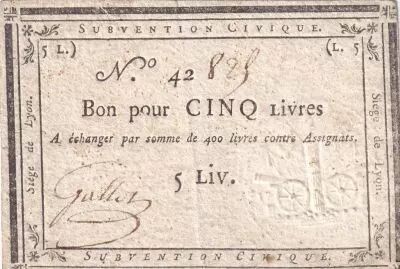 SUBVENTION CIVIQUE.
5 L.) (L. 5
N.º 42 825
Bon pour CINQ LIVRES
A échanger par somme de 400 livres contre Assignats.
5 Liv.
Siége de Lyon.
Siége de Lyon.
SUBVENTION CIVIQUE.